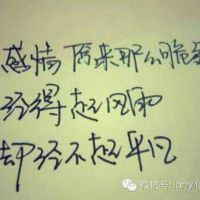 感情原来那么脆
经得起风雨
却经不起平凡
微信号: